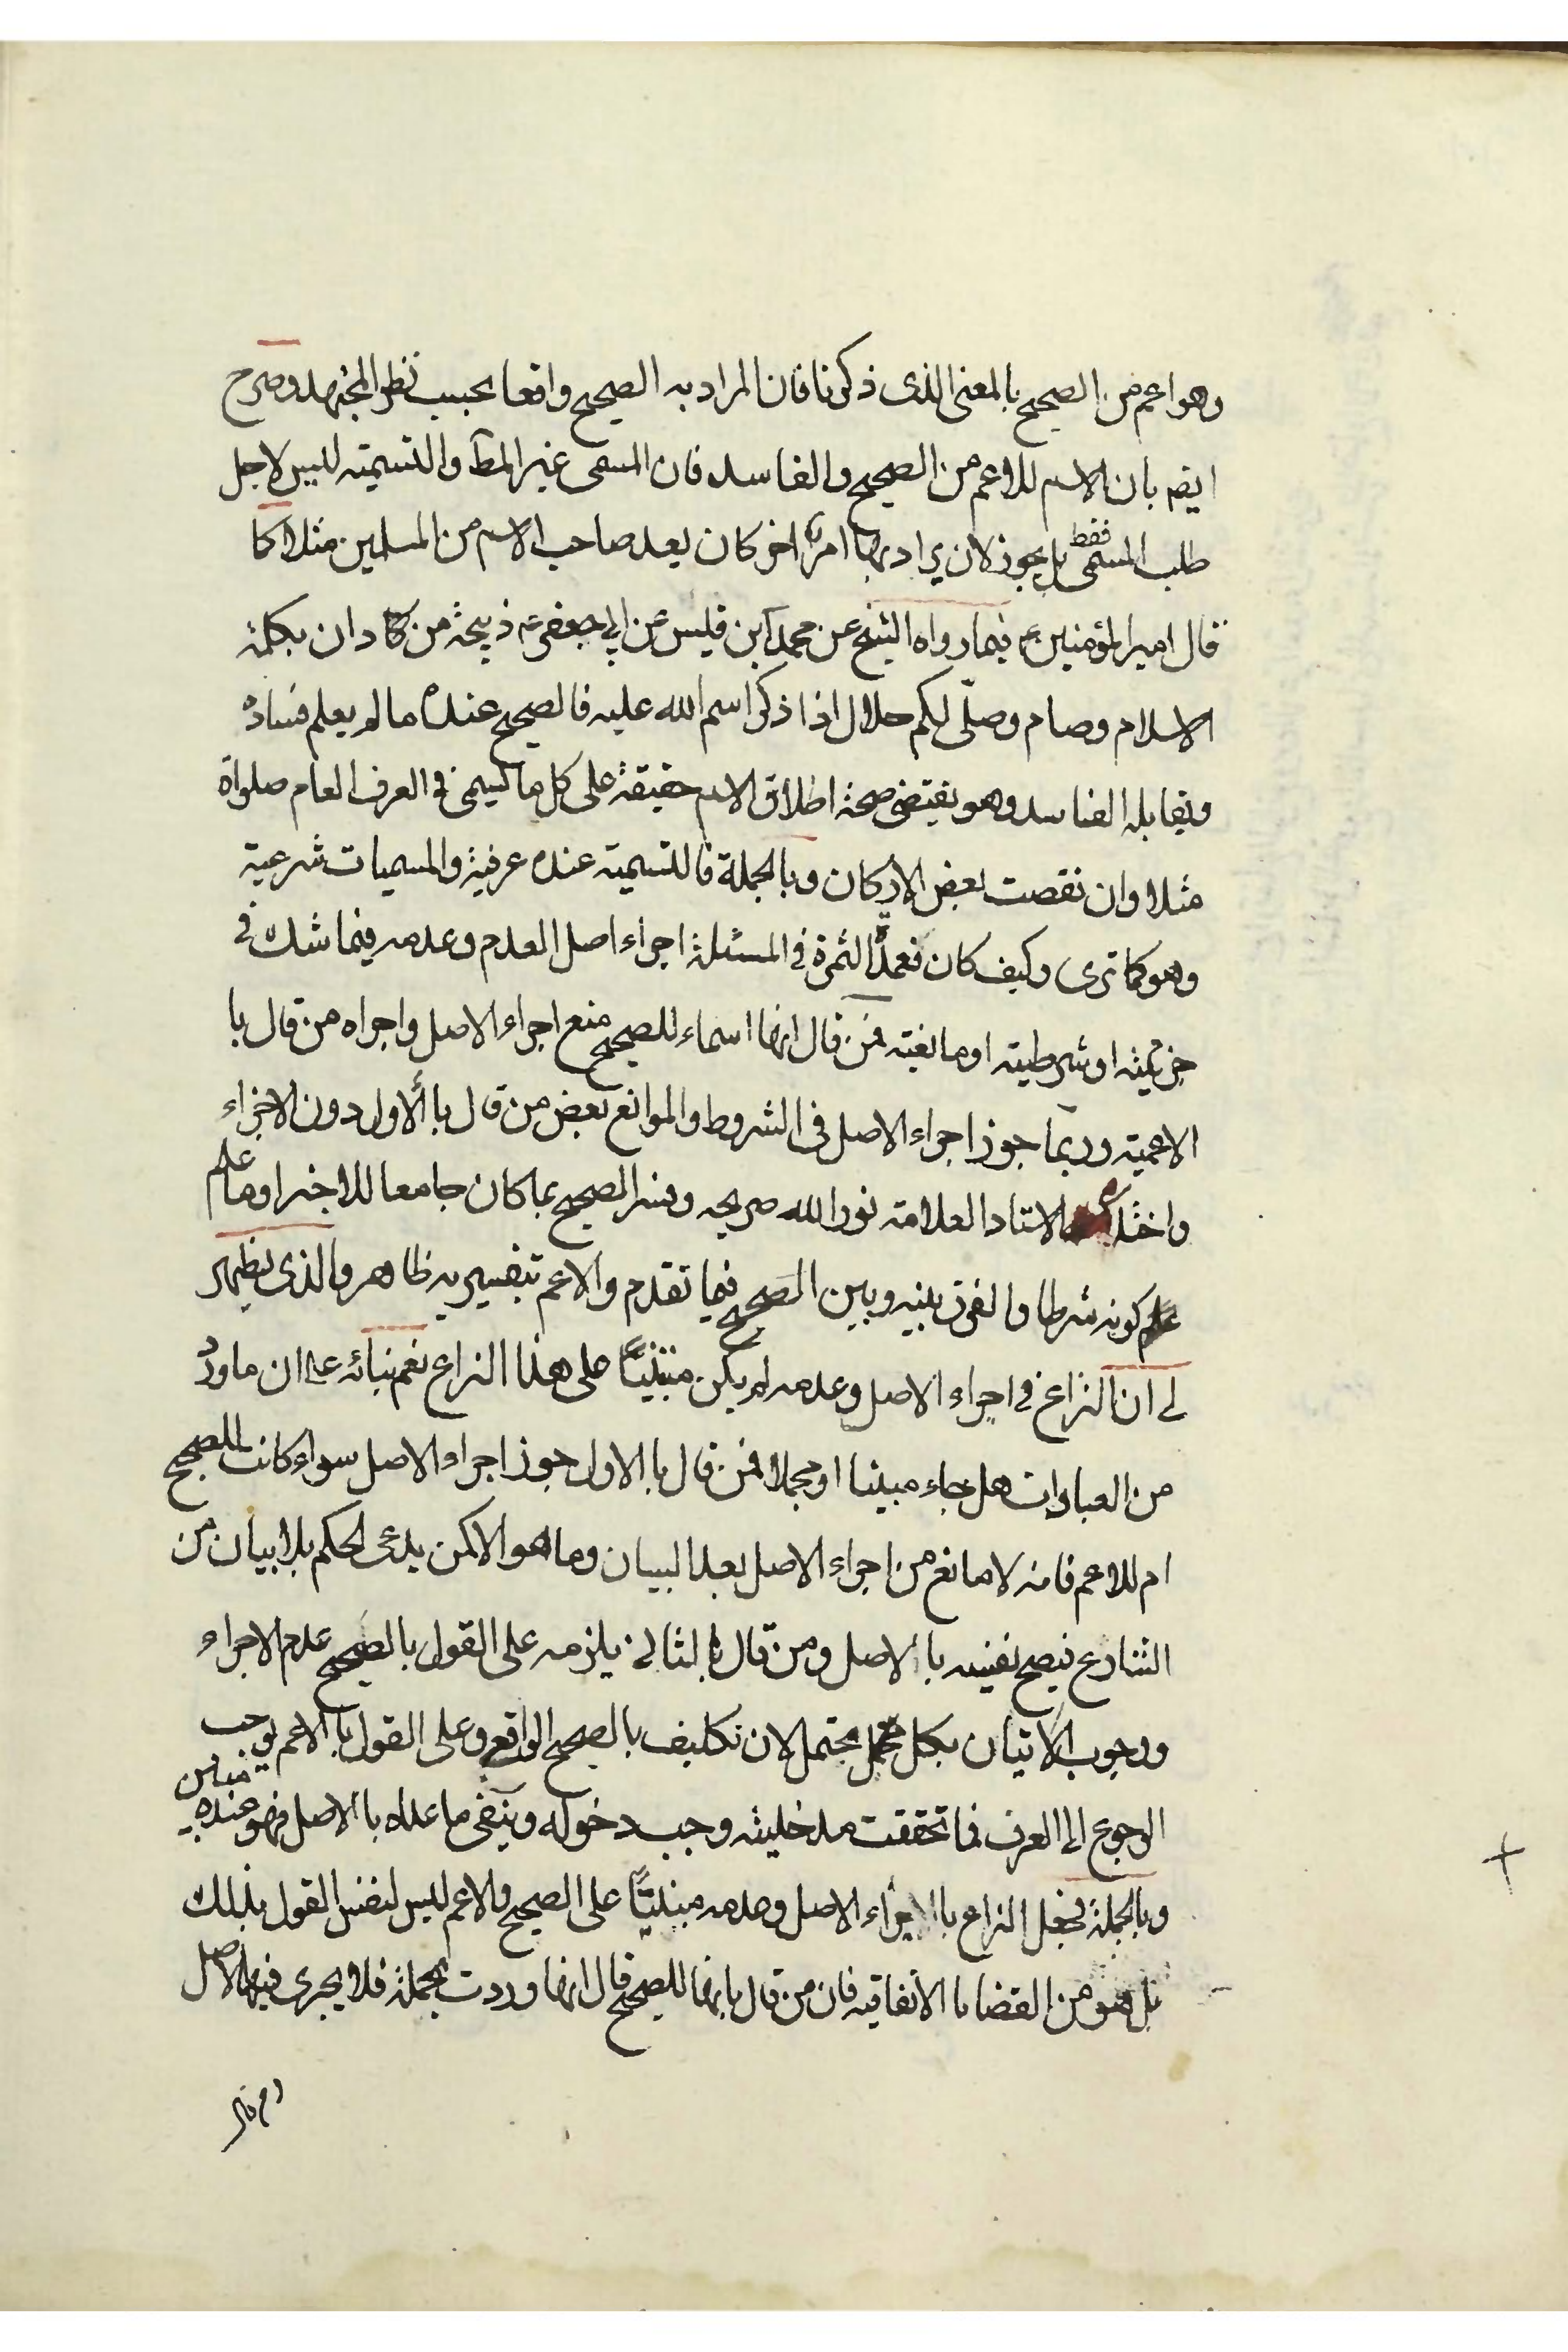 وهو اعم من الصحيح بالمعنى الذى ذكرنا فان المراد به الصحيح واقعا بحسب نظر المجتهد وصرح
ايضا بان الاسم للاعم من الصحيح والفاسد فان المسمى غير المط والتسمية ليس لاجل
طلب المسمى فقط بل يجوز لان يراد بها امر اخر كان يعد صاحب الاسم من المسلمين مثلا كا
قال امير المؤمنين ع فيما رواه الشيخ عن محمد ابن قيس عن ابي جعفر ع ذبيحة من دان بكلمة
الاسلام وصام وصلّى لكم حلال اذا ذكر اسم الله عليه فالصحيح عنده ما لم يعلم فساده
ويقابله الفاسد وهو يقتضى صحة اطلاق الاسم حقيقة على كل ما يسمى فى العرف العام صلواة
مثلا وان نقصت بعض الاركان وبالجملة فالتسمية عنده عرفية والمسميات شرعية
وهو كما ترى وكيف كان فعمدّ الثمرة في المسئلة اجراء اصل العدم وعدمه فيما شك فى
جزئيته او شرطيته او مانعيته فمن قال انها اسماء للصحيح منع اجراء الاصل واجراه من قال با
الاعمية وربما جوز اجراء الاصل فى الشروط والموانع بعض من قال بالأول دون الاجزاء
واختاره الاستاد العلامة نور الله ضريحه وفسر الصحيح بما كان جامعا للاجزاء وما علم
علم كونه شرطا والفرق بينه وبين الصحيح فيما تقدم والاعم بتفسيريه ظاهر والذى يظهر
لى ان النزاع فى اجراء الاصل وعدمه لم يكن مبتنيًا على هذا النزاع نعم بنائه على ان ما ورد
من العبادات هل جاء مبينا او مجملا فمن قال بالاول جوز اجراء الاصل سواء كانت للصحيح
ام للاعم فانه لا مانع من اجراء الاصل بعد البيان وما هو الا كمن يدعى الحكم بلا بيان من
الشارع فيصح نفيه بالاصل ومن قال بالثانى يلزمه على القول بالصحيح عدم الاجراء
ووجوب الاتيان بكل محتمل لان تكليف بالصحيح الواقع وعلى القول بالاعم يوجب
الرجوع الى العرف فما تحققت مدخليته وجب دخوله وينفى ما عداه بالاصل فهو عنده مبين
وبالجملة فجعل النزاع بالاجراء الاصل وعدمه مبنيًا على الصحيح والاعم ليس لنفس القول بذلك
بل هو من القضايا الاتفاقيه فان من قال بانها للصحيح قال انها وردت مجملة فلا يجرى فيها الاصل